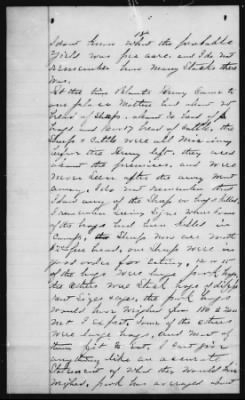 I dont know what the probable
yield was per acre. and I do not
remember how many stacks there
was.
At the time Blunts Army came to
our place Mother had about 
head of Sheep. about 70 head of
hogs and head of Cattle, the
Sheep & Cattle were all missing
before the Army left. they were
about the premises, and were
never seen after the army went
away. I do not remember that
I saw any of the Sheep or hogs killed
I remember seeing signs where some
of the hogs had been killed in
Camp. the Sheep mixed with
fine head, our Sheep were in
good order for eating. 12 or 15
of the hogs were large pork hogs,
the others was stock hogs of differ
ent sizes & ages, the pork hogs
would have weighed from 150 to 200
net I expect, Some of the others
were large hogs, and most of
them fit to eat, I cant give
anything like an accurate
Statement of what they would have
weighed, pork has averaged about